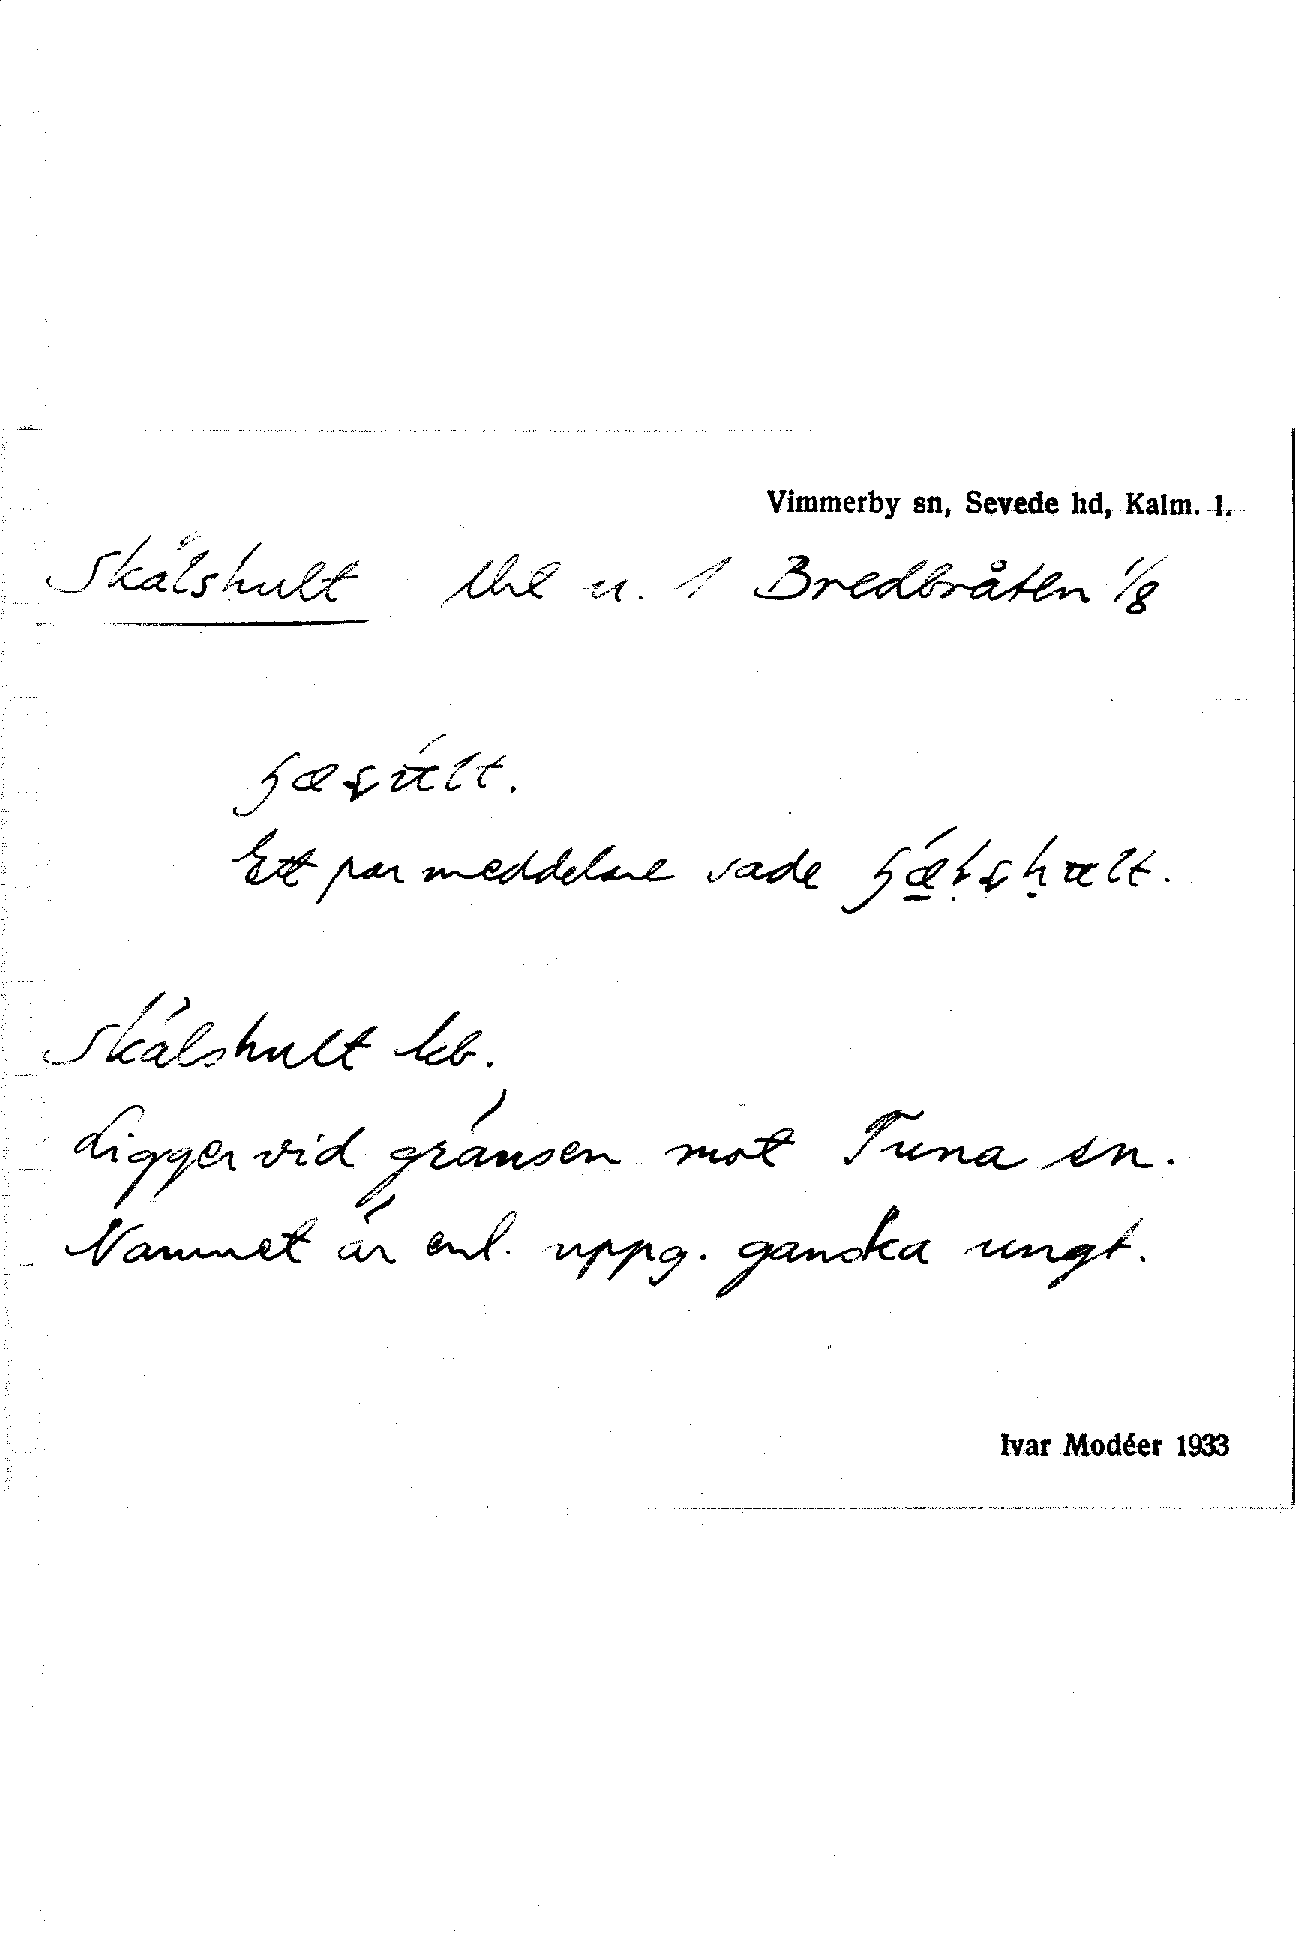 Vimmerby sn, Sevede hd, Kalm. l.
Skälshult lhl u. 1 Bredbråten 1/8
Ett par meddelare sade
Skälshult kb.
Ligger vid gränsen mot Tuna sn.
Namnet är enl. uppg. ganska ungt.
Ivar Modéer 1933